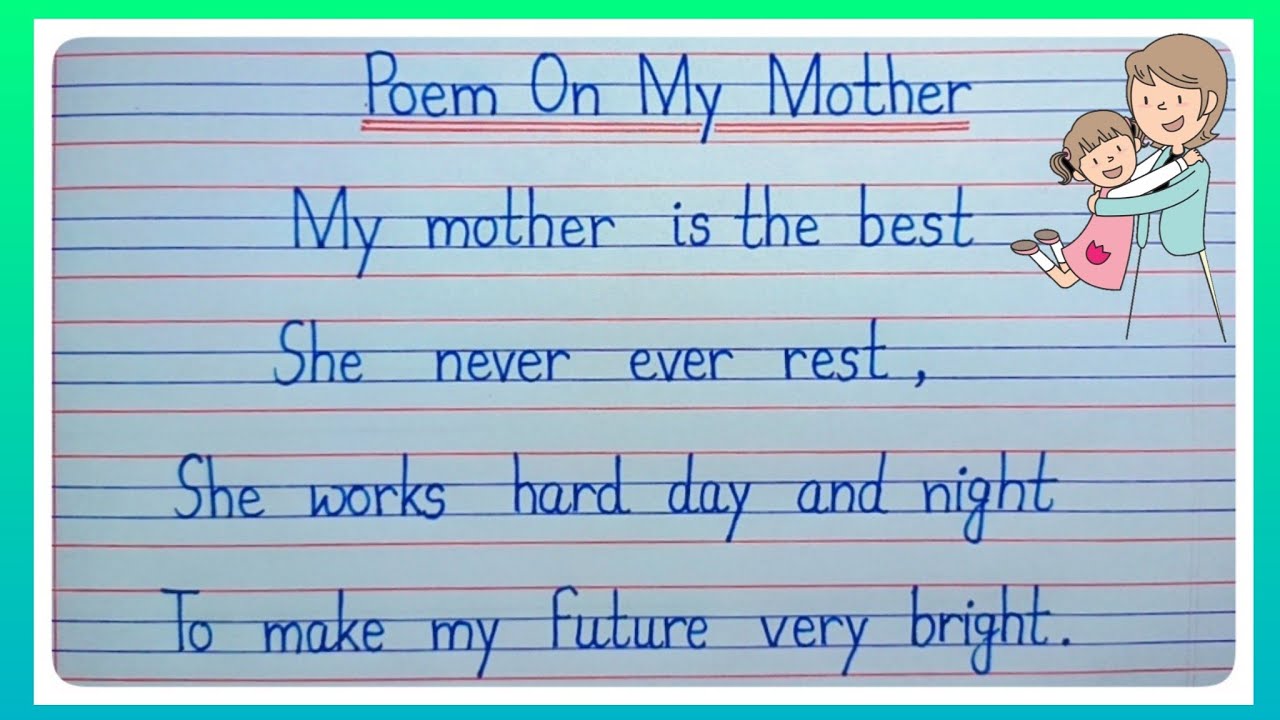 Poem On My Mother
My mother is the best
She never ever rest,
She works hard day and night
To make my future very bright.